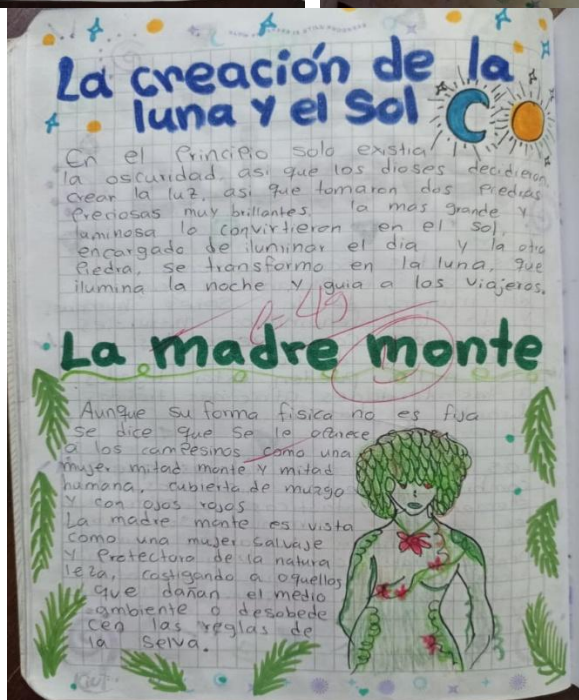 La creación de la
luna y el Sol
En el Principio solo existia
la oscuridad, asi que los dioses decidieron
crear la luz, asi que tomaron dos Piedras
Preciosas muy brillantes. la mas grande y
luminosa lo convirtieron en el sol,
encargado de iluminar el dia y la otra
Piedra, se transformo en la luna, que
ilumina la noche y guia a los viajeros.
La madre monte
Aunque su forma fisica no es fija
se dice que se le aparece
a los campesinos como una
mujer mitad monte y mitad
humana, cubierta de muzgo
y con ojos rojos
La madre monte es vista
como una mujer salvaje
y Protectora de la natura
leza, castigando a aquellos
que dañan el medio
ambiente o desobede
cen las reglas de
la selva.